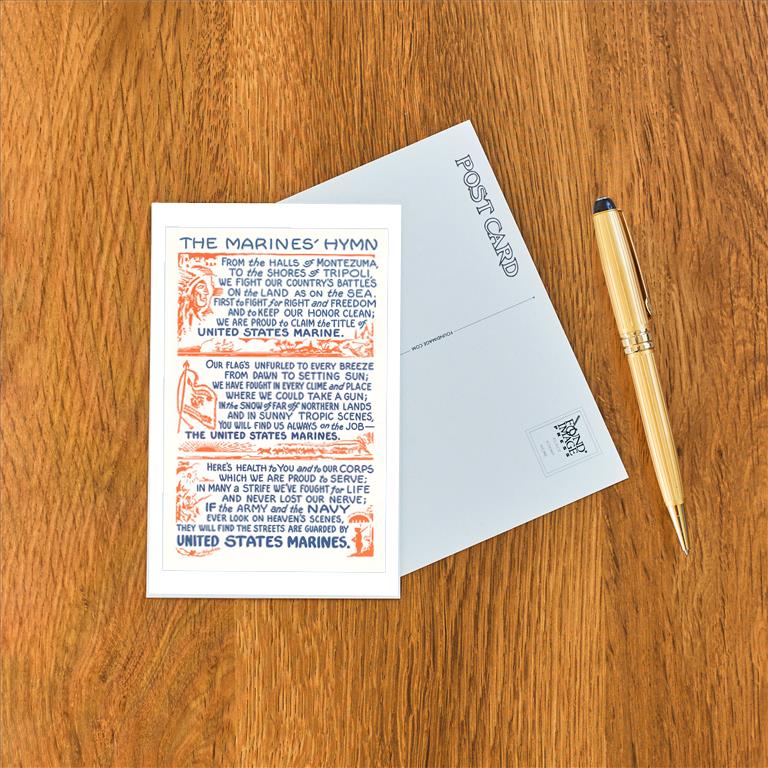 THE MARINES' HYMN
FROM the HALLS of MONTEZUMA,
TO the SHORES of TRIPOLI,
WE FIGHT OUR COUNTRY'S BATTLES
ON the LAND AS ON the SEA.
FIRST to FIGHT for RIGHT and FREEDOM
AND to KEEP OUR HONOR CLEAN;
WE ARE PROUD to CLAIM the TITLE of
UNITED STATES MARINE.
OUR FLAG'S UNFURLED TO EVERY BREEZE
FROM DAWN TO SETTING SUN;
WE HAVE FOUGHT IN EVERY CLIME and PLACE
WHERE WE COULD TAKE A GUN;
IN the SNOW of FAR off NORTHERN LANDS
AND IN SUNNY TROPIC SCENES,
YOU WILL FIND US ALWAYS on the JOB—
THE UNITED STATES MARINES.
HERE'S HEALTH to YOU and to OUR CORPS
WHICH WE ARE PROUD to SERVE;
IN MANY a STRIFE WE'VE FOUGHT for LIFE
AND NEVER LOST OUR NERVE;
IF the ARMY and the NAVY
EVER LOOK ON HEAVEN'S SCENES,
THEY WILL FIND THE STREETS ARE GUARDED BY
UNITED STATES MARINES.
POST CARD
FOUNDIMAGE.COM
FOUND
IMAGE